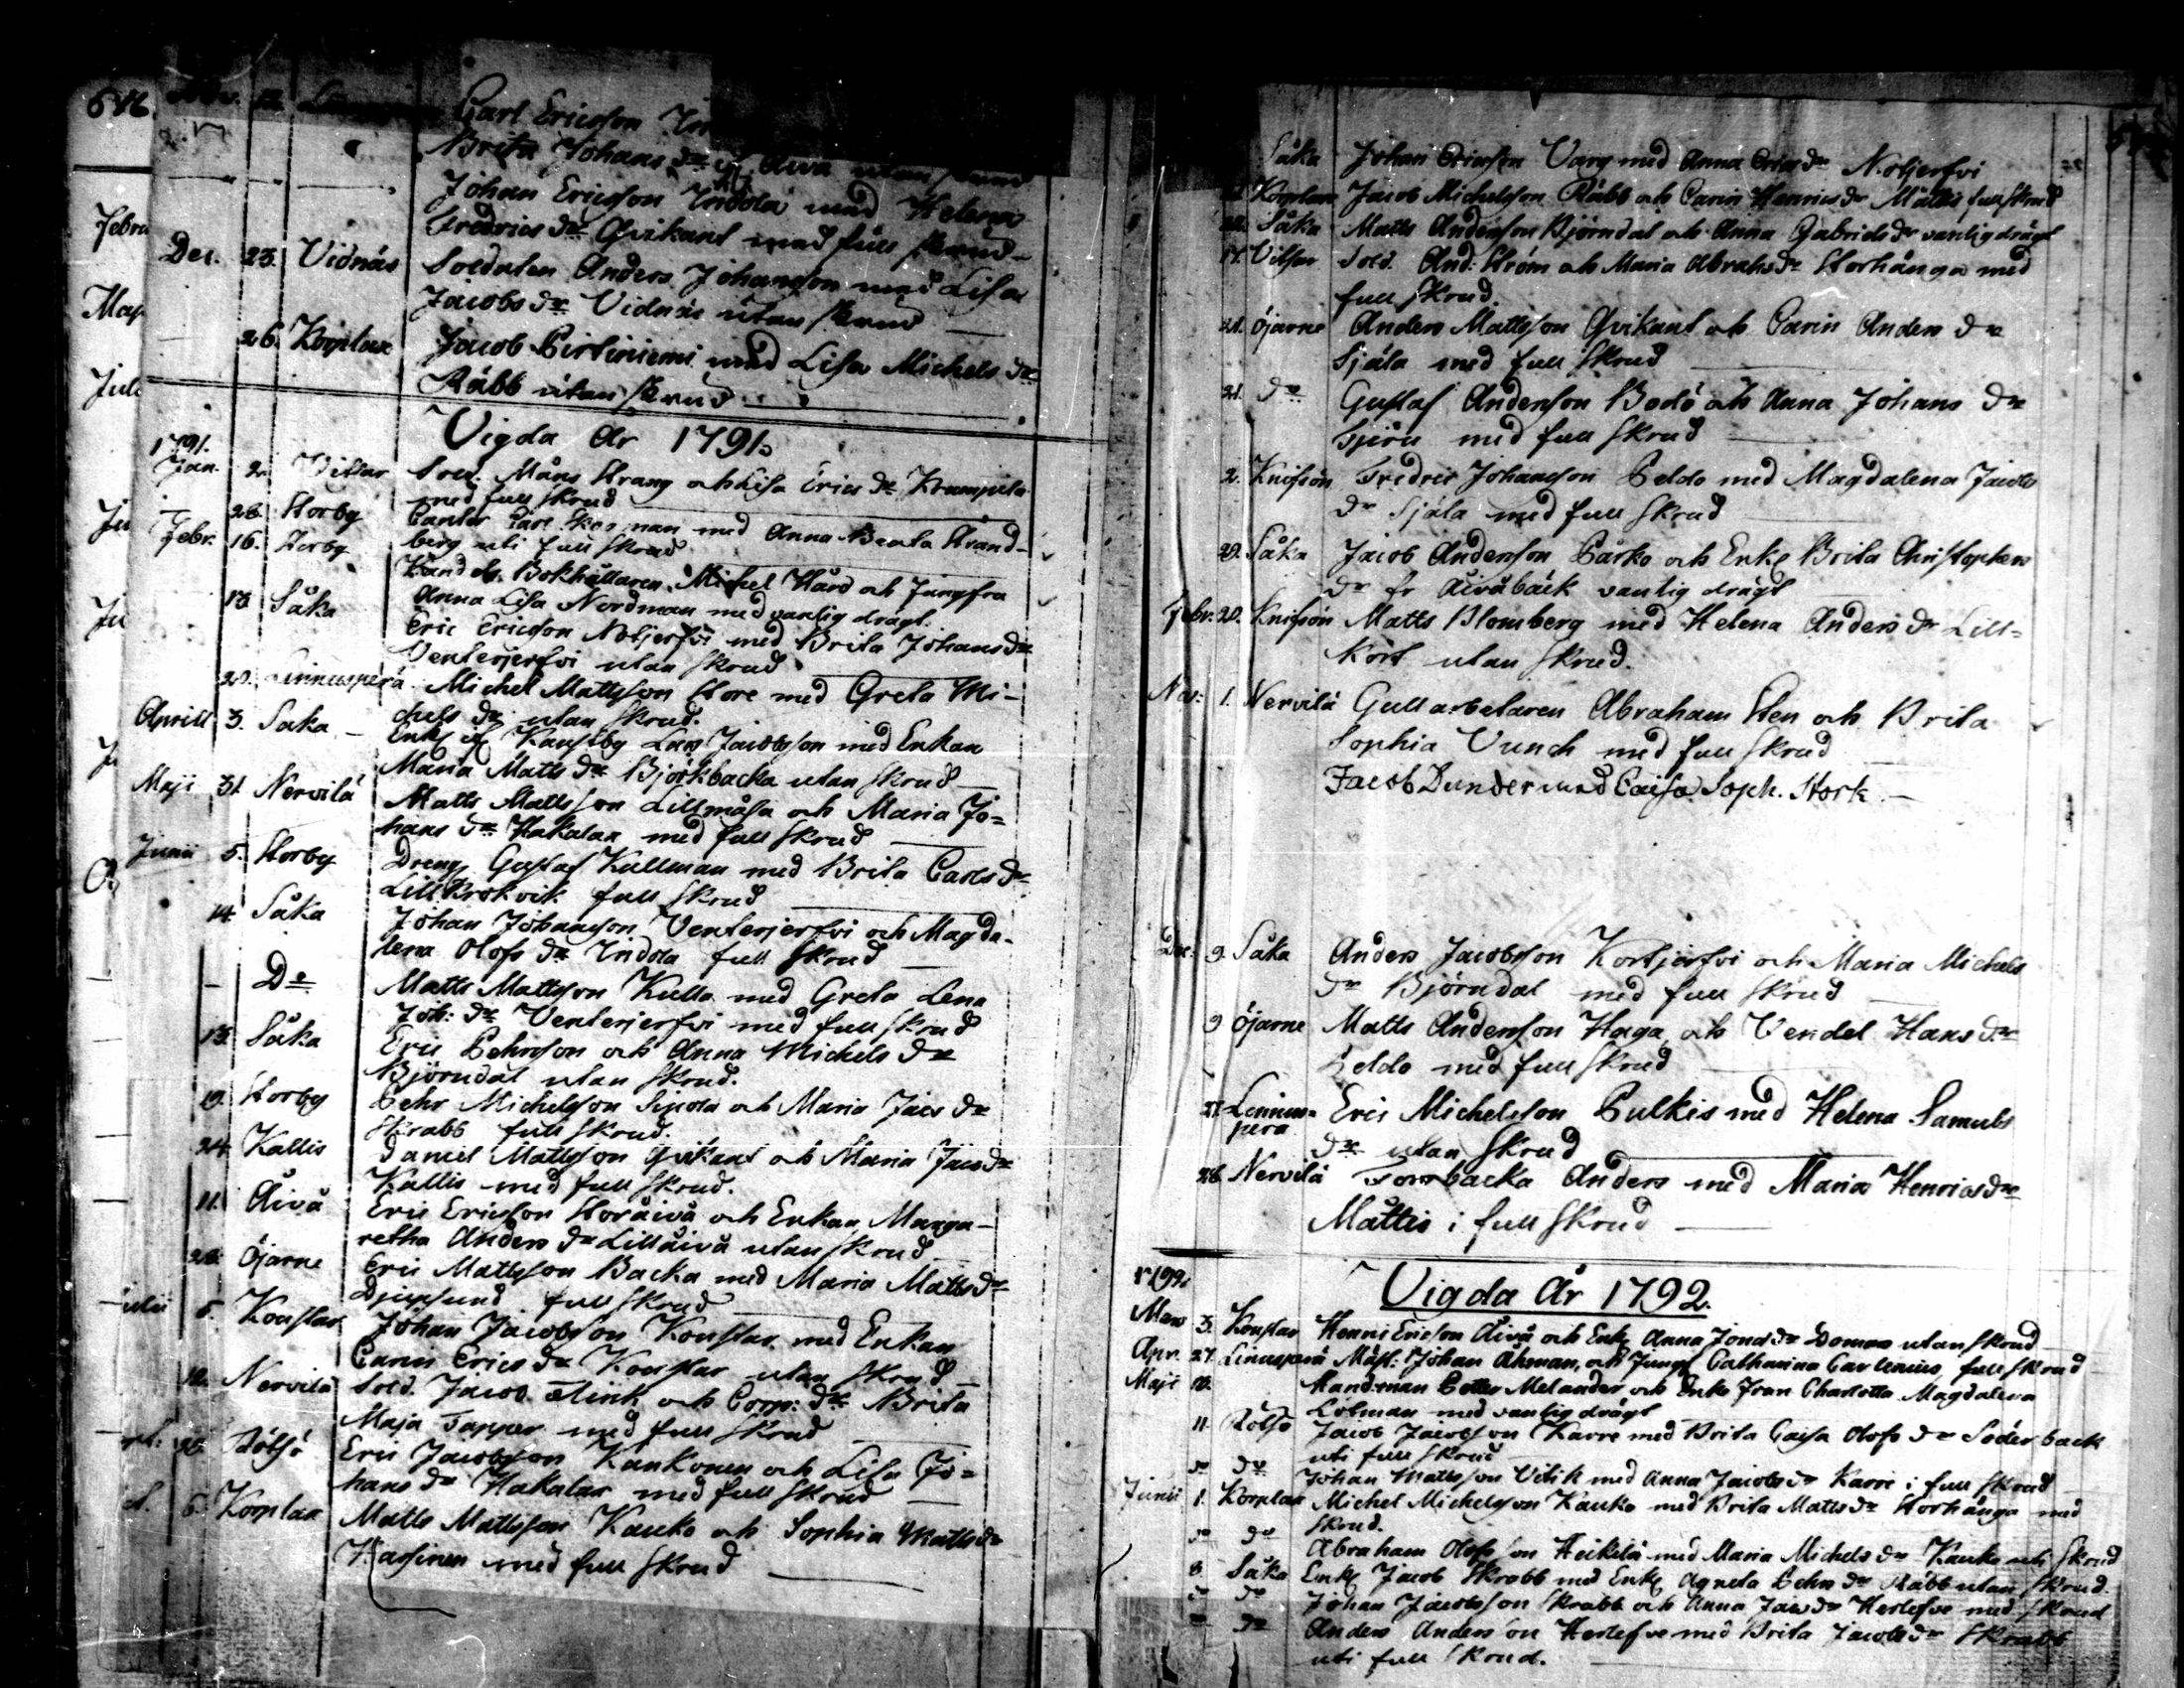 Carl Ericsson
Brita Johans dr utan skrud
Johan Ericsson Indola med Helena
Fredrics dr Qvikant med full skrud
Dec. 23. Vidnäs Soldaten Anders Johansson med Lisa
Jacobs dr Vidnäs utan skrud
26. Korplax Jacob Pirtiniemi med Lisa Michels dr
Räbb utan skrud
Vigda År 1791.
1791.
Jan. 2. Sold. Måns Strang och Lisa Erics dr Krumpula
med full skrud
28. Storby Cantor med Anna Beata Strand-
berg uti full skrud
Febr. 16. Storby Bokhållaren Michel Hård och Jungfru
Anna Lisa Nordman med vanlig drägt.
13. Såka Eric Ericsson Notjerfvi med Brita Johans dr
Venterjerfvi utan skrud
20. Linnusperä Michel Mattsson Store med Greta Mi-
chels dr utan skrud.
Aprill 3. Såka Enkl af Kaustby Lars Jacobsson med Enkan
Maria Matts dr Björkbacka utan skrud
Maji 31. Nervilä Matts Mattsson Lillmåsa och Maria Jo=
hans dr Hakalax med full skrud
Junii 5. Storby Dreng Gustaf Kullman med Brita Carls dr
Lill Brokvik full skrud
14. Såka Johan Johansson Venterjerfvi och Magda-
lena Olofs dr Indola full skrud
Do Matts Mattsson Kulla med Greta Lena
Joh: dr Venterjerfvi med full skrud
13. Såka Eric Pehrsson och Anna Michels dr
Björndal utan skrud.
19. Storby Pehr Michelsson och Maria Jacs dr
Skrabb full skrud.
24. Kallis Daniel Mattsson Qvikant och Maria Jacs dr
Kallis med full skrud.
11. Åivå Eric Ericsson Storåivå och Enkan Marga-
retha Anders dr Lillåivå utan skrud
26. Öjarne Eric Mattsson Backa med Maria Matts dr
Djupsund full skrud
5. Konstar Johan Jacobsson Konstar med Enkan
Carin Erics dr Konstar utan skrud
12. Nervilä Sold. Jacob Flink och Corp: dr Brita
Maja Tapper med full skrud
26. Röbsö Eric Jacobsson Kankonen och Lisa Jo=
hans dr Hakalax med full skrud
6. Korplax Matts Mattsson Kauko och Sophia Matts dr
Kassinen med full skrud
Såka Johan Ericsson Varg med Anna Erics dr Notjerfvi
Korplax Jacob Michelsson Räbb och Carin Henrics dr Mattis full skrud
22. Såka Matts Andersson Björndal och Anna Gabriels dr vanlig drägt
17. Sold. And: Ström och Maria Abrahs dr Storhånga med
full skrud.
21. Öjarne Anders Mattsson Qvikant och Carin Anders dr
Själa med full skrud
21. do Gustaf Andersson Bodö och Anna Johans dr
med full skrud
2. Knifsön Fredric Johansson Peldo med Magdalena Jacobs
dr Själa med full skrud
29. Såka Jacob Andersson Parko och Enke Brita Christophers
dr fr Åivåbäck vanlig drägt
Febr. 20. Knifsön Matts Blomberg med Helena Anders dr Lill=
Kört utan skrud.
Nov: 1. Nervilä Gullarbetaren Abraham Sten och Brita
Sophia Vunch med full skrud
Jacob Dunder med Caisa Soph. Stork.
Dec: 9. Såka Anders Jacobsson Kortjerfvi och Maria Michels
dr Björndal med full skrud
9 Öjarne Matts Andersson Haga och Vendel Hans dr
Peldo med full skrud
27. Linnus=
pera Eric Michelsson Pulkis med Helena Samuels
dr utan skrud
26 Nervilä Torrbacka Anders med Maria Henrics dr
Mattis i full skrud
Vigda År 1792.
1792.
Mars 3. Konstar Henric Ericsson Åivå och Enk Anna Jonas dr Domars utan skrud
Apr. 27. Linusperä Mäst: Johan Åhman och Jungf Catharina Carlenius, full skrud
Maji 10. Handsman Petter Melander och Enke Frun Charlotta Magdalena
Lohman med vanlig drägt
11. Röbsö Jacob Jacobsson Karre med Brita Caisa Olofs dr Söderback
uti full skrud
do do Johan Mattsson Vitik med Anna Jacobs dr Karri i full skrud
Junii 1. Korplax Michel Michelsson Kauko med Brita Matts dr Storhånga med
skrud.
do do Abraham Olofsson Heikilä med Maria Michels dr Kauko uti skrud
8. Såka Enkl Jacob Skrabb med Enkl Agneta Pehrs dr Räbb utan skrud
do do Johan Jacobsson Skrabb och Anna Jacs dr Herlefve med skrud
do do Anders Andersson Herlefve med Brita Jacobs dr Skrabb
uti full skrud.